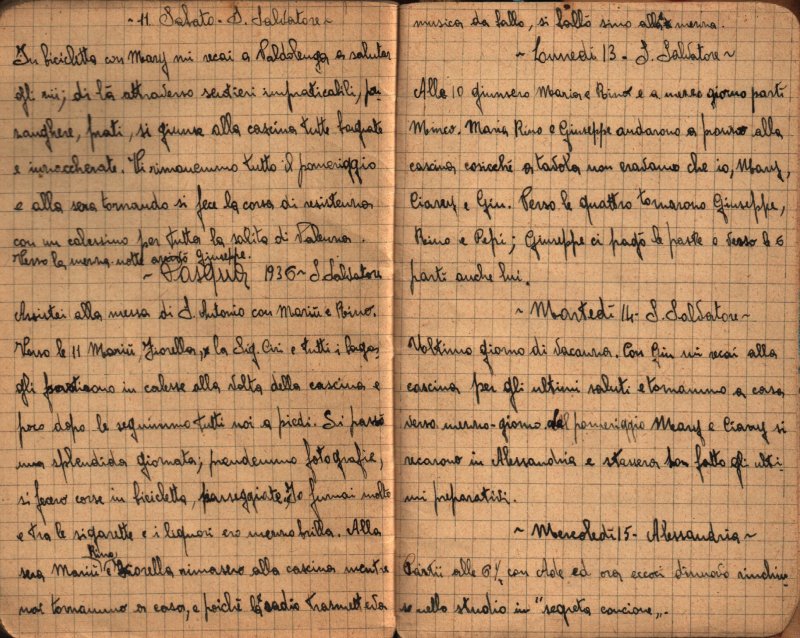 ~ 11 Sabato - S. Salvatore ~
In bicicletta con Mary mi recai a Valdolenga a salutar
gli zii; di là attraverso sentieri impraticabili, poz-
zanghere, prati, si giunse alla cascina tutte bagnate
e inzaccherate. Vi rimanemmo tutto il pomeriggio
e alla sera tornando si fece la corsa di resistenza
con un calessino per tutta la salita di Valenza.
Verso la mezza-notte arrivò Giuseppe.
~ Pasqua 1936 ~ S. Salvatore
Assistei alla messa di S. Antonio con Mariù e Rino.
Verso le 11 Mariù, Fiorella, la Sig. Cvi e tutti i baga-
gli partirono in calesse alla volta della cascina e
poco dopo le seguimmo tutti noi a piedi. Si passò
una splendida giornata; prendemmo fotografie,
si fecero corse in bicicletta, passeggiate. Io fumai molto
e tra le sigarette e i liquori ero mezzo brilla. Alla
sera Mariù Rino e Fiorella rimasero alla cascina mentre
noi tornammo a casa, e poiché la radio trasmetteva
musica da ballo, si ballò sino alla mezza.
~ Lunedì 13 - S. Salvatore ~
Alle 10 giunsero Maria e Rino e a mezzo giorno partì
Mirco. Maria Rino e Giuseppe andarono a pranzo alla
cascina cosicché a tavola non eravamo che io, Mary,
Ciavy e Giu. Verso le quattro tornarono Giuseppe,
Rino e Pepi; Giuseppe ci pagò le paste e verso le 6
partì anche lui.
~ Martedì 14 - S. Salvatore ~
L'ultimo giorno di vacanza. Con Giu mi recai alla
cascina per gli ultimi saluti e tornammo a casa
verso mezzo-giorno. Nel pomeriggio Mary e Ciavy si
recarono in Alessandria e stassera ho fatto gli ulti-
mi preparativi.
~ Mercoledì 15 - Alessandria ~
Partii alle 6½ con Ade ed ora eccoci dinuovo rinchiu-
se nello studio in "segreta canzone".